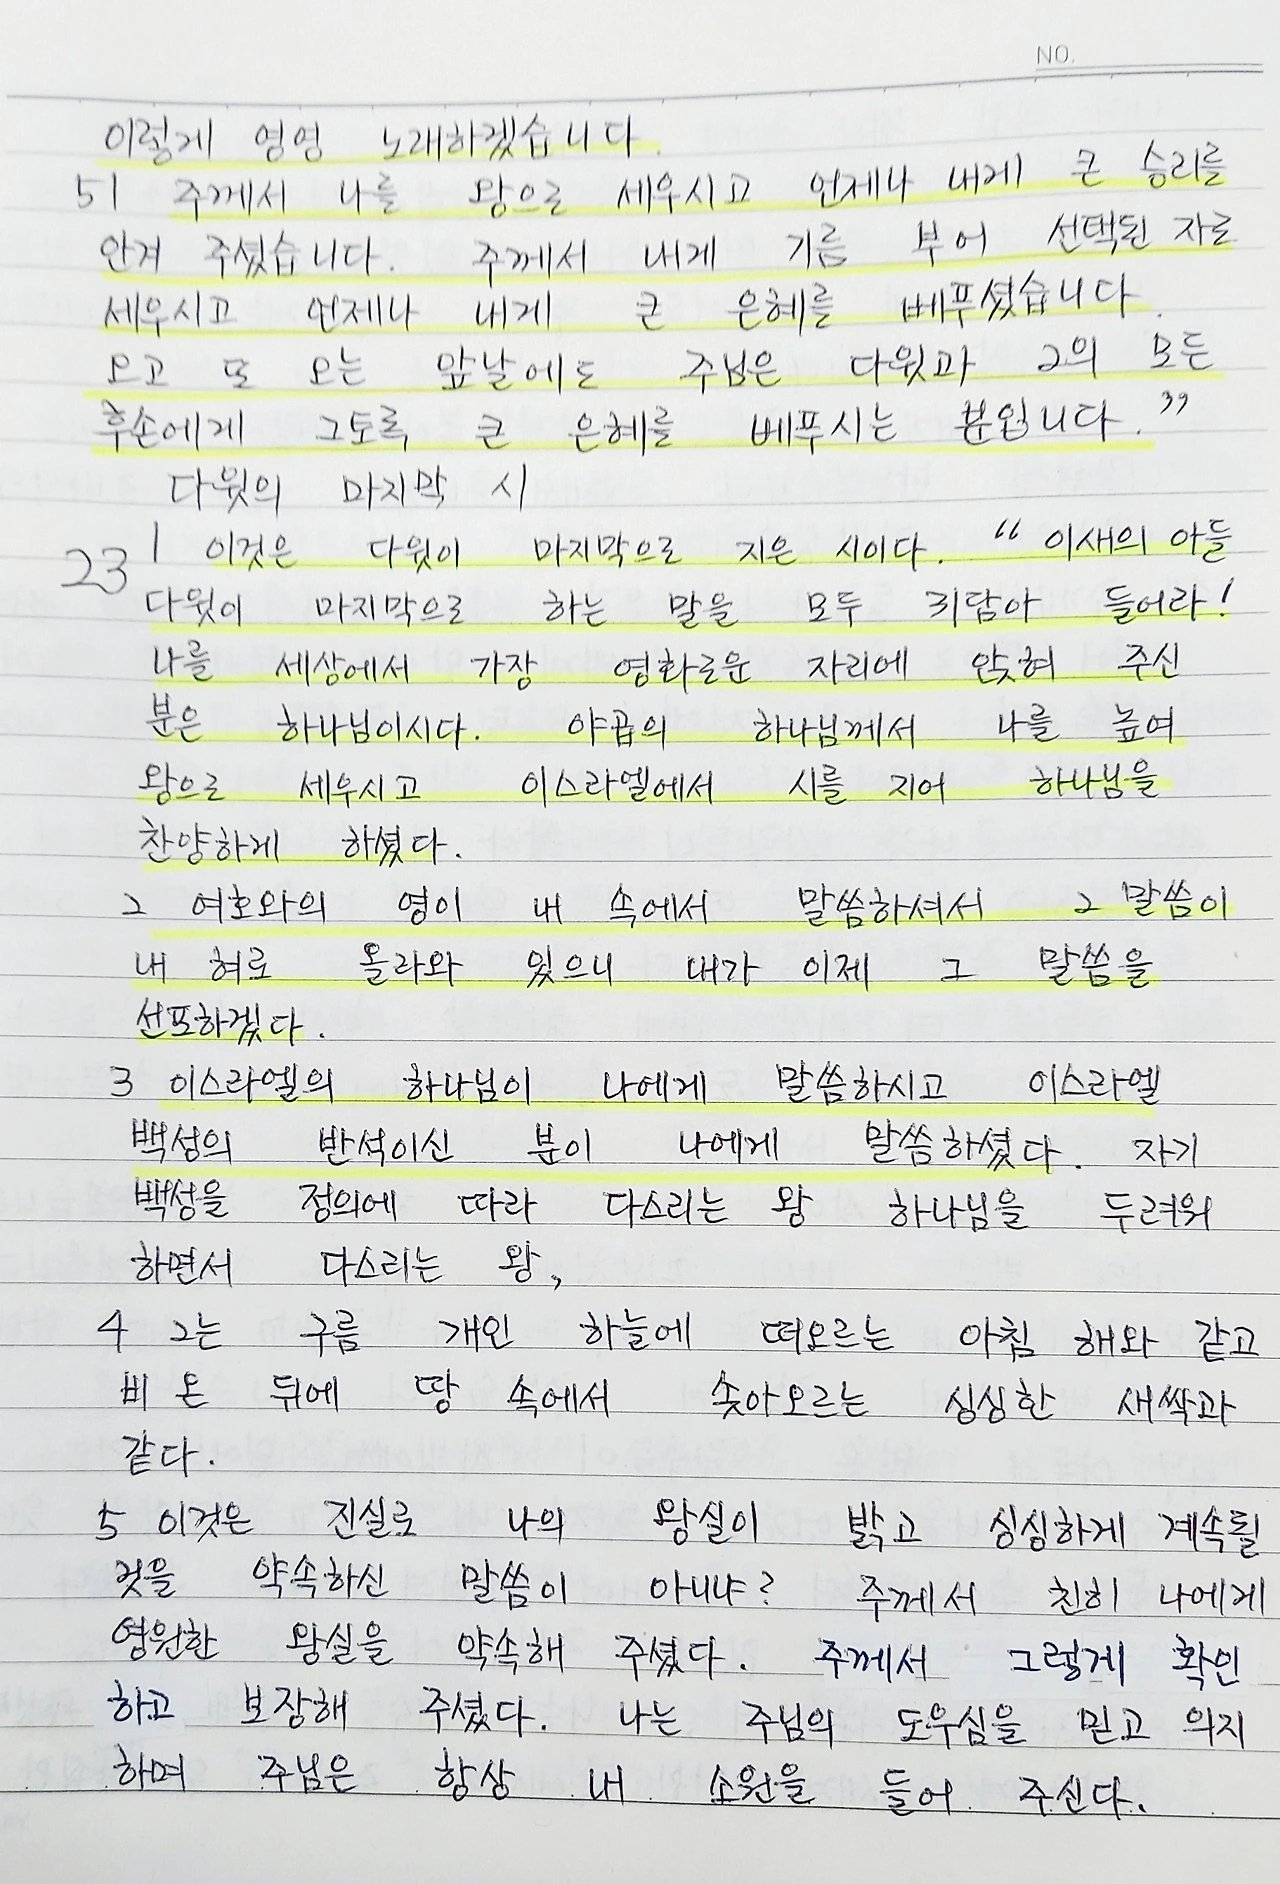 NO.
이렇게 영영 노래하겠습니다.
51 주께서 나를 왕으로 세우시고 언제나 내게 큰 승리를
안겨 주셨습니다. 주께서 내게 기름 부어 선택된 자로
세우시고 언제나 내게 큰 은혜를 베푸셨습니다.
오고 또 오는 앞날에도 주님은 다윗과 그의 모든
후손에게 그토록 큰 은혜를 베푸시는 분입니다.”
다윗의 마지막 시
23 1 이것은 다윗이 마지막으로 지은 시이다. “이새의 아들
다윗이 마지막으로 하는 말을 모두 귀담아 들어라!
나를 세상에서 가장 영화로운 자리에 앉혀 주신
분은 하나님이시다. 야곱의 하나님께서 나를 높여
왕으로 세우시고 이스라엘에서 시를 지어 하나님을
찬양하게 하셨다.
2 여호와의 영이 내 속에서 말씀하셔서 그 말씀이
내 혀로 올라와 있으니 내가 이제 그 말씀을
선포하겠다.
3 이스라엘의 하나님이 나에게 말씀하시고 이스라엘
백성의 반석이신 분이 나에게 말씀하셨다. 자기
백성을 정의에 따라 다스리는 왕 하나님을 두려워
하면서 다스리는 왕,
4 그는 구름 개인 하늘에 떠오르는 아침 해와 같고
비 온 뒤에 땅 속에서 솟아오르는 싱싱한 새싹과
같다.
5 이것은 진실로 나의 왕실이 밝고 싱싱하게 계속될
것을 약속하신 말씀이 아니냐? 주께서 친히 나에게
영원한 왕실을 약속해 주셨다. 주께서 그렇게 확인
하고 보장해 주셨다. 나는 주님의 도우심을 믿고 의지
하며 주님은 항상 내 소원을 들어 주신다.